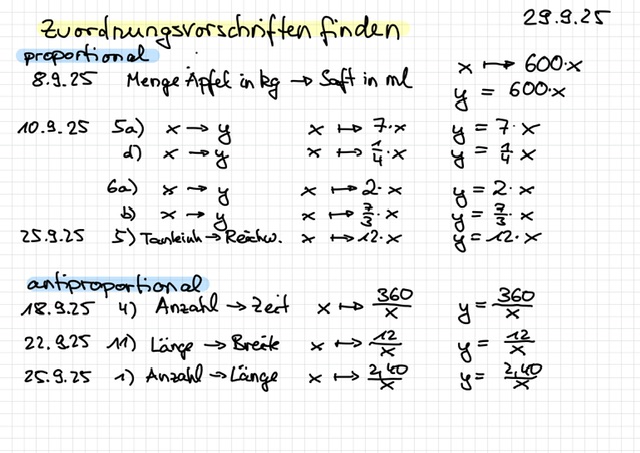 Zuordnungsvorschriften finden 29.9.25
proportional
8.9.25 Menge Äpfel in kg → Saft in ml x ↦ 600·x
y = 600·x
10.9.25 5a) x → y x ↦ 7·x y = 7·x
d) x → y x ↦ 1/4·x y = 1/4·x
6a) x → y x ↦ 2·x y = 2·x
b) x → y x ↦ 7/3·x y = 7/3·x
25.9.25 5) Tankinh → Reichw. x ↦ 12·x y = 12·x
antiproportional
18.9.25 4) Anzahl → Zeit x ↦ 360/x y = 360/x
22.9.25 11) Länge → Breite x ↦ 12/x y = 12/x
25.9.25 1) Anzahl → Länge x ↦ 2,40/x y = 2,40/x